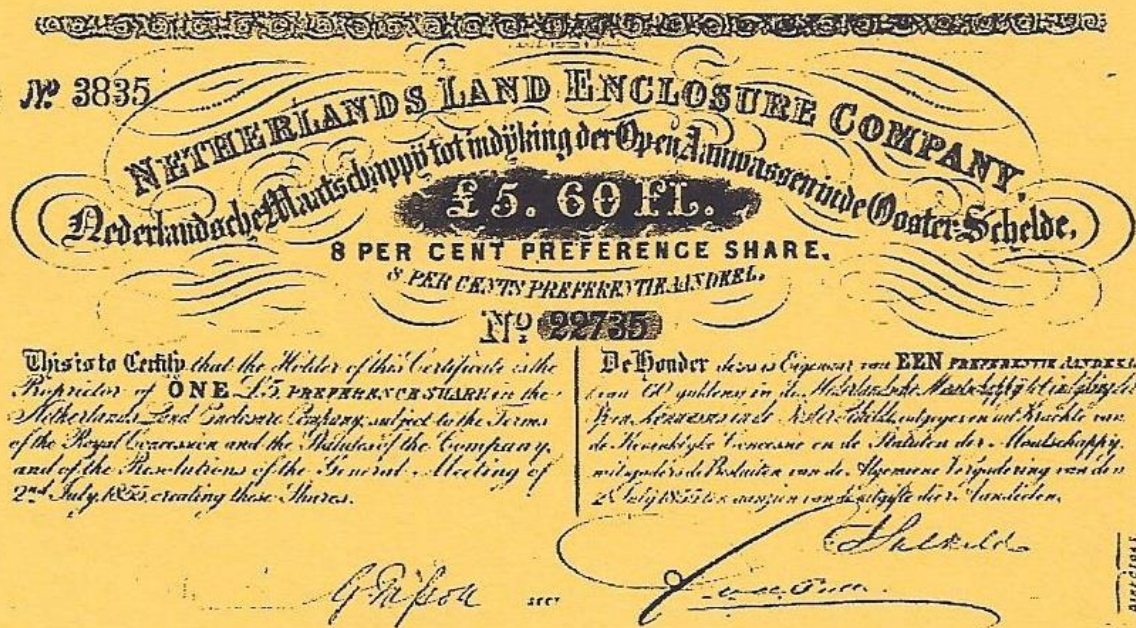 Nº 3835
NETHERLANDS LAND ENCLOSURE COMPANY,
Nederlandsche Maatschappij tot indijking der Open Aanwassen in de Ooster-Schelde.
£5. 60 FL.
8 PER CENT PREFERENCE SHARE.
8 PER CENTS PREFERENTIE AANDEEL.
Nº 22735
This is to Certify that the Holder of this Certificate is the
Proprietor of ONE £5 PREFERENCE SHARE in the
Netherlands Land Enclosure Company, subject to the Terms
of the Royal Concession and the Statutes of the Company,
and of the Resolutions of the General Meeting of
2nd July, 1855, creating these Shares.
De Houder dezes is Eigenaar van EEN PREFERENTIE AANDEEL
van 60 guldens in de
uitgegeven uit krachte van
de Koninklijke Concessie en de Statuten der Maatschappij,
mitsgaders de Besluiten van de Algemeene Vergadering van den
2 July 1855 ten aanzien van de uitgifte dier Aandeelen.
SECY